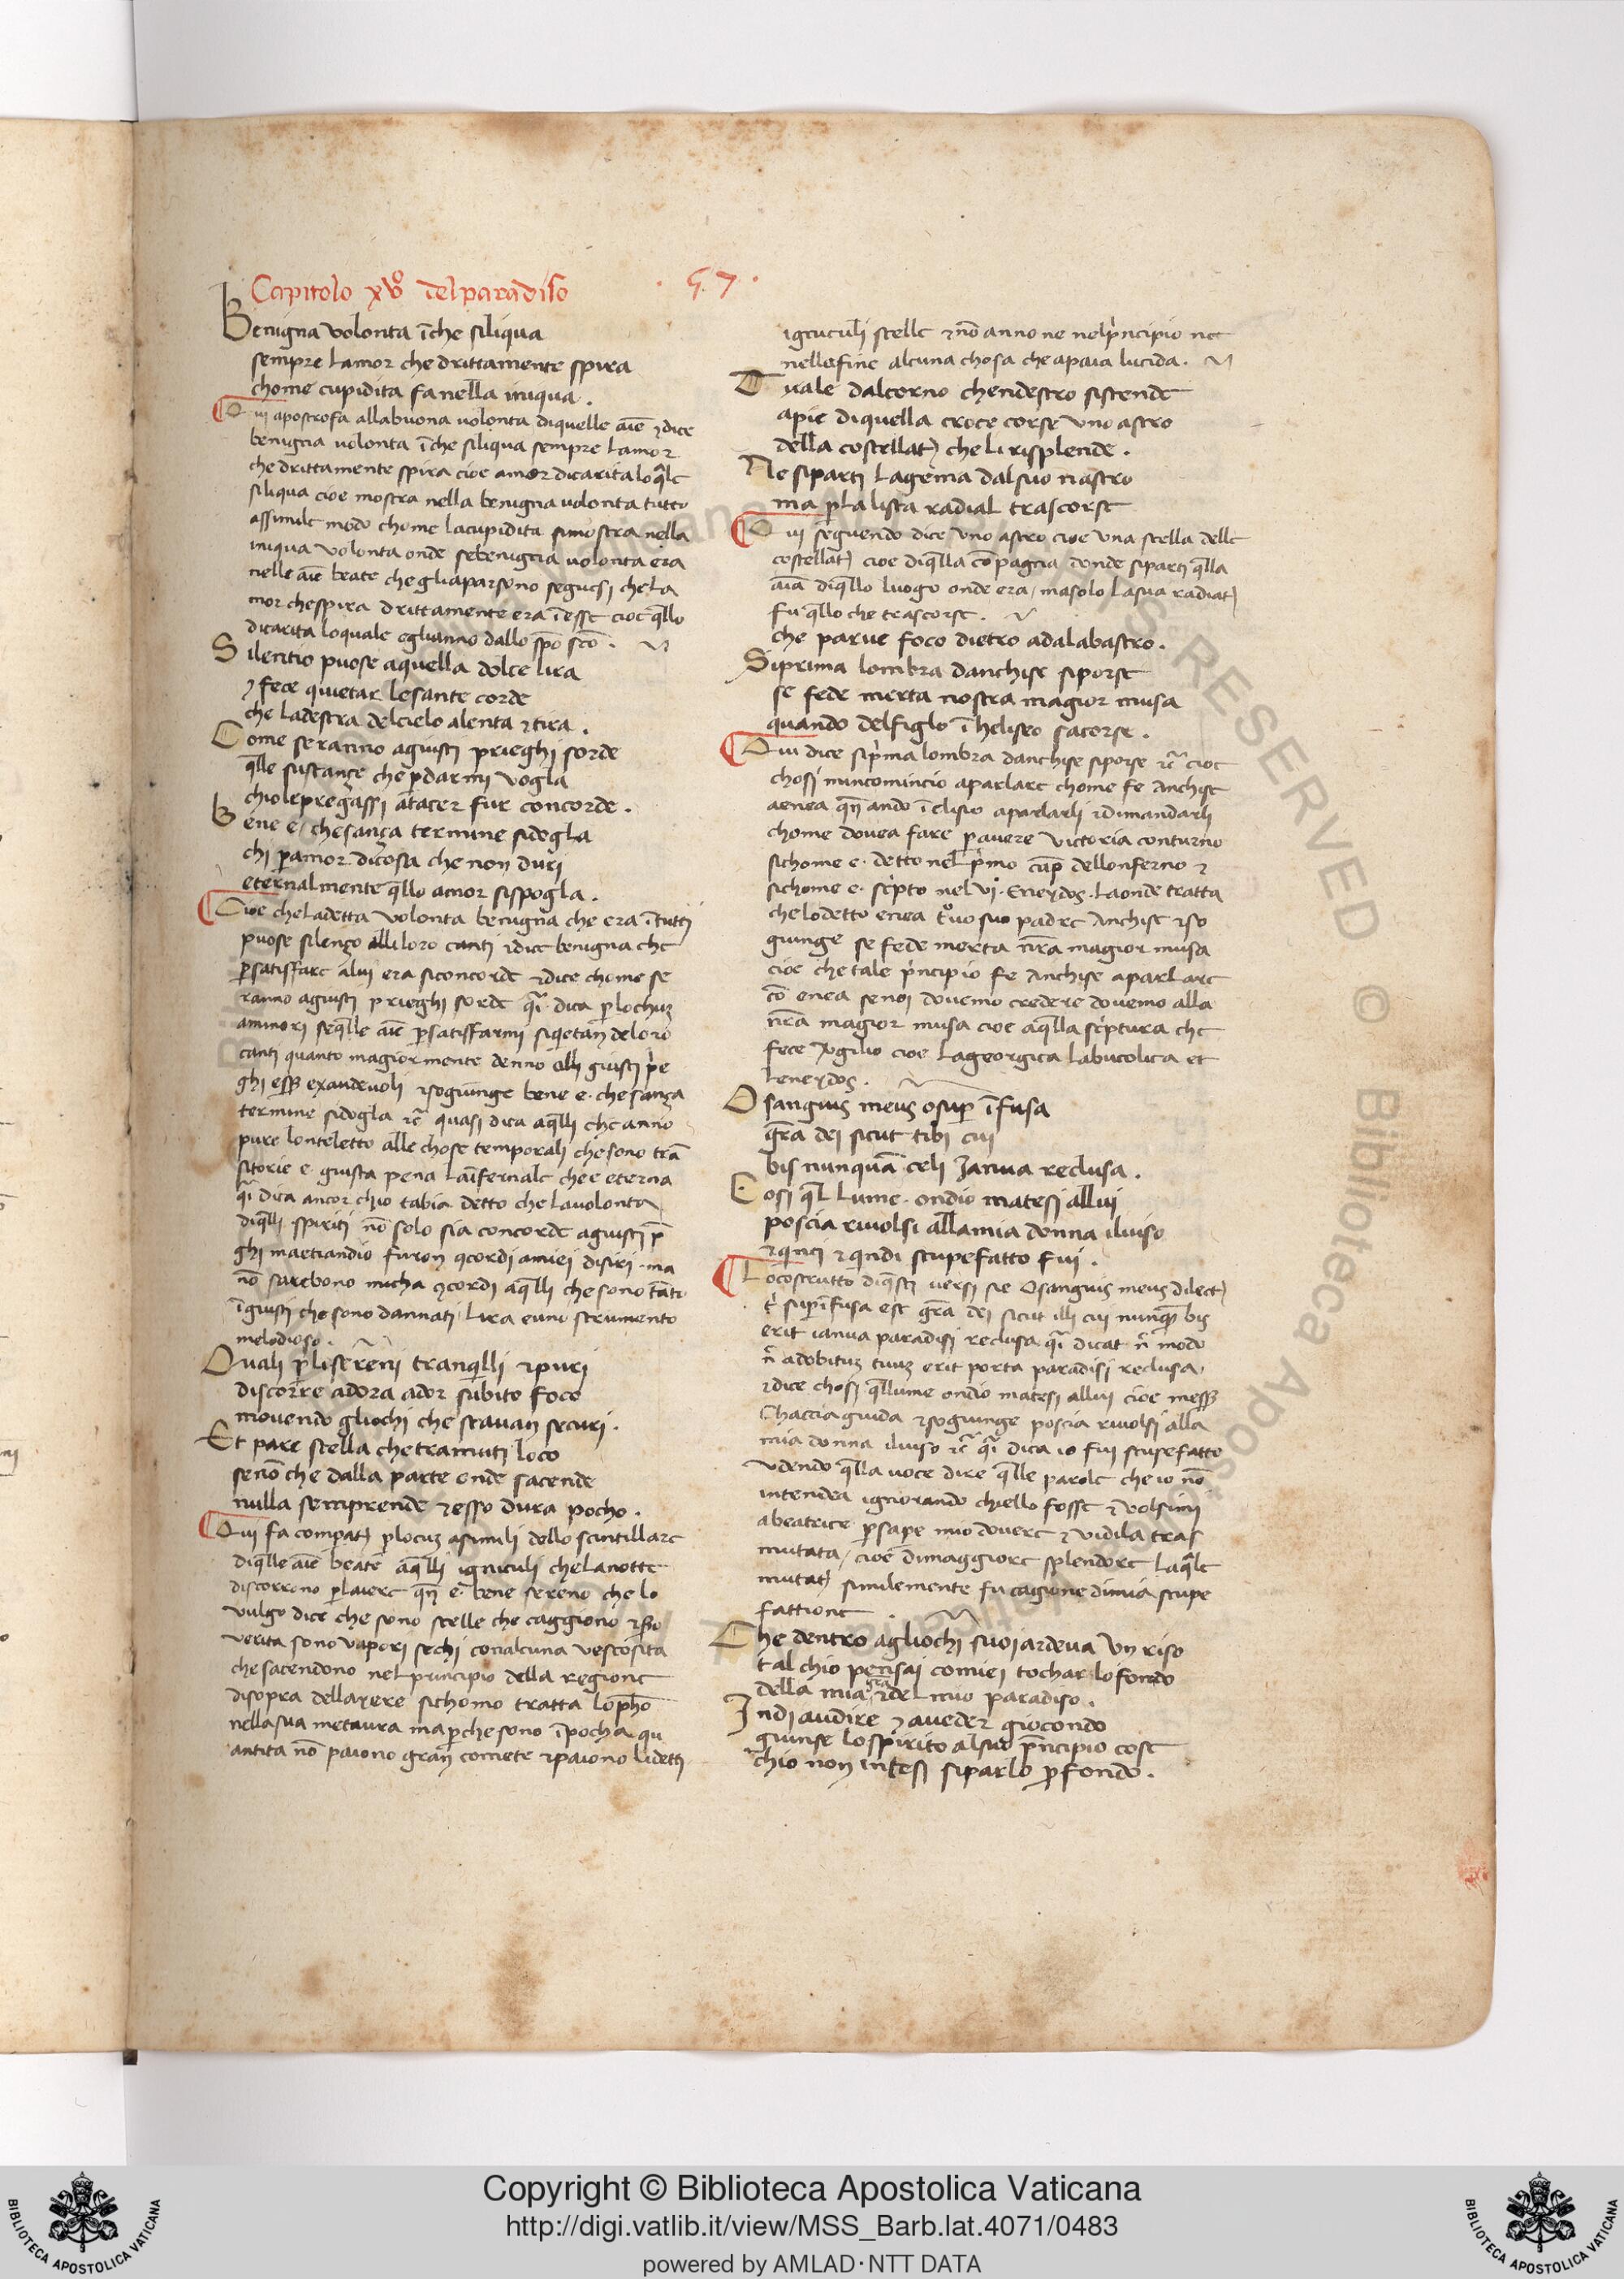 Capitolo xvº del paradiso
· 57 ·
Benigna volonta ī che siliqua
sempre lamor che drittamente spira
chome cupidita fa nella iniqua .
Qui apostrofa alla buona volonta di quelle aīe ⁊ dice
benigna volonta ī che siliqua sempre lamor
che drittamente spira cioe amor di carita lo q̄le
siliqua cioe mostra nella benigna volonta tutto
assimile modo chome la cupidita si mostra nella
iniqua volonta onde se benigna volonta era
nelle aīe beate che gli aparsono seguesi che la
mor che spira drittamente era ī esse cioe q̄llo
di carita lo quale egli anno dallo spō scō .
Silentio puose a quella dolce lira
⁊ fece quietar le sante corde
che la destra del cielo alenta ⁊ tira .
Come seranno a giusti prieghi sorde
q̄lle sustanze che p̄ darmi vogla
chio le pregassi a tacer fur concorde .
Bene e / che sanza termine si dogla
chi p̄ amor di cosa che non duri
eternalmente q̄llo amor si spogla .
Cioe che la detta volonta benigna che era ī tutti
puose silenzo alli loro canti ⁊ dice benigna che
p̄ satisffare a lui era si concorde ⁊ dice chome se
ranno a giusti prieghi sorde q̄i dica p̄ lochuz
a minori se q̄lle aīe p̄ satisffarmi si q̄etan de loro
canti quanto magiormente denno alli giusti p̄e
ghi ess̄ exaudevoli ⁊ sogiunge bene e · che sanza
termine si dogla ⁊c̄ quasi dica a q̄lli che anno
pure lonteletto alle chose temporali che sono trā
sitorie e giusta pena la īfernale che e eterna
q̄i dica ancor chio tabia detto che la volonta
di q̄lli spiriti nō solo sia concorde a giusti p̄
ghi ma etiandio furon ꝯcordi a miei disiri · ma
nō sarebono micha ꝯcordi a q̄lli che sono tāto
īgiusti che sono dannati · Lira e uno strumento
melodioso .
Quali p̄ li sereni tranq̄lli ⁊ puri
discorre ad ora ad or subito foco
movendo gli ochi che stavan securi .
Et pare stella che tramuti loco
se nō che dalla parte onde sacende
nulla sem prende ⁊ esso dura pocho .
Qui fa compat̄ p̄ locuz a simili dello scintillare
di q̄lle aīe beate a q̄lli igniculi che la notte
discorrono p̄ laiere q̄n̄ e bene sereno che lo
vulgo dice che sono stelle che caggiono ⁊
verita sono vapori sechi con alcuna vescosita
che sacendono nel principio della regione
di sopra dellayere sichomo tratta lo pħo
nella sua metaura ma p̄che sono ī pocha qu
antita nō paiono gran comete ⁊ paiono li detti
igniculi stelle ⁊ nō anno ne nel p̄ncipio ne
nella fine alcuna chosa che apaia lucida .
Tuale dal corno chen destro si stende
a pie di quella croce corse uno astro
della costellat̄ che li risplende .
Ne si parti la gema dal suo nastro
ma p̄ la lista radial trascorse
Qui seguendo dice uno astro cioe una stella delle
costellat̄ cioe di q̄lla cōpagnia donde si parti q̄lla
aīa di q̄llo luogo onde era / ma solo la sua radiat̄
fu q̄llo che trascorse .
che parve foco dietro ad alabastro .
Si prima lombra danchise si porse
se fede merta nostra magior musa
quando del figlo ī heliseo sacorse .
Qui dice si p̄ma lombra danchise si porse ⁊c̄ cioe
chossi mincomincio a parlare chome fe Anchise
a enea q̄n̄ ando ī elisio a parlarli ⁊ dimandarli
chome dovea fare p̄ avere victoria con turno
sichome e · detto nel p̄mo cap̄ dellonferno ⁊
sichome e · sc̄pto nel vj · Eneydos · La onde tratta
che lo detto enea t̄vo suo padre Anchise ⁊ so
giunge se fede merta nr̄a magior musa
cioe che tale p̄ncipio fe Anchise a parlare
cō enea se noi dovemo credere dovemo alla
nr̄a magior musa cioe a q̄lla sc̄ptura che
fece Vgilio cioe la georgica la bucolica et
leneydos .
O sanguis meus o sup̄ īfusa
gr̄a dei sicut tibi cui
bis nunquā celi Janua reclusa .
Cosi q̄l lume · ondio matesi a llui
poscia rivolsi alla mia donna il viso
⁊ q̄nci ⁊ q̄ndi stupefatto fui .
Lo costrutto di q̄sti versi sie O sanguis meus dilect̄
t̄ sup̄īfusa est gr̄a dei sicut illi cui nunq̄ bis
erit ianua paradisi reclusa q̄i dicat n̄ modo
n̄ ad obituz tuuz erit porta paradisi reclusa
⁊ dice chosi q̄l lume ondio matesi a llui cioe mess̄
Chaccia guida ⁊ sogiunge poscia rivolsi alla
mia donna il viso ⁊c̄ q̄i dica io fui stupefatto
udendo q̄lla voce dire q̄lle parole che io nō
intendea ignorando chi ello fosse ⁊ volsimi
a beatrice p̄ sape mio dovere ⁊ vidila tras
mutata / cioe di maggiore splendore la q̄le
mutat̄ similemente fu cagione di mia stupe
fattione .
Che dentro agli ochi suoi ardeva un riso
tal chio pensai co miei tochar lo fondo
della mia gr̄a ⁊ del mio paradiso .
Indi a udire ⁊ a veder giocondo
giunse lo spirito al suo p̄ncipio cose
chio non intesi si parlo p̄fondo .
Copyright © Biblioteca Apostolica Vaticana
http://digi.vatlib.it/view/MSS_Barb.lat.4071/0483
powered by AMLAD·NTT DATA
BIBLIOTECA APOSTOLICA VATICANA
BIBLIOTECA APOSTOLICA VATICANA